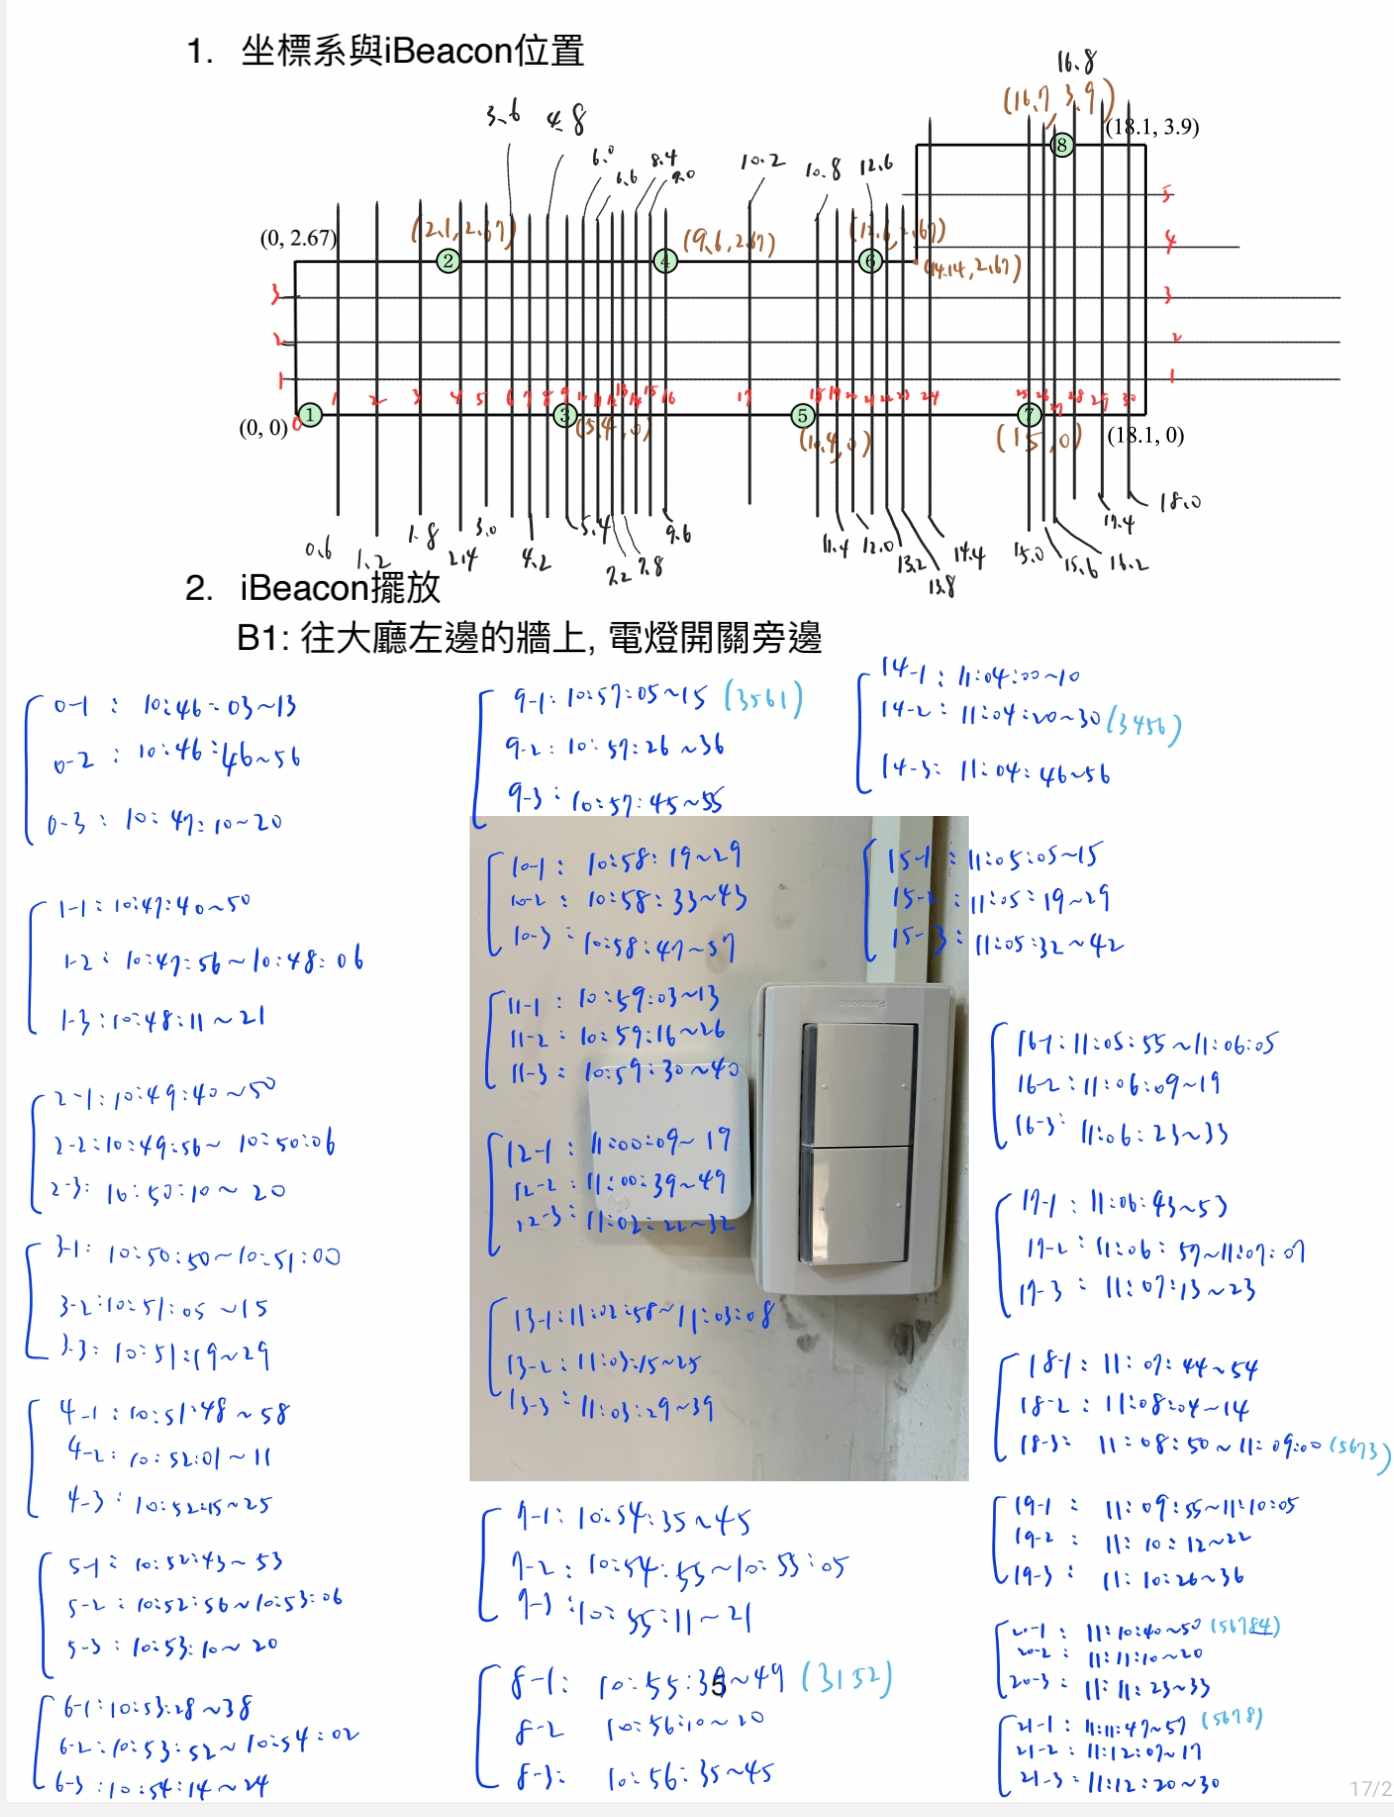 1. 坐標系與iBeacon位置
16.8
(16.7, 3.9)
(18.1, 3.9)
3.6 4.8
6.0 6.6 8.4 9.0 10.2 10.8 12.6
(0, 2.67)
(2.1, 2.67)
(9.6, 2.67)
(12.6, 2.67)
(14.14, 2.67)
② ④ ⑥ ⑧
5
4
3 3
2 2
1 1
1 2 3 4 5 6 7 8 9 10 11 12 13 14 15 16 17 18 19 20 21 22 23 24 25 26 27 28 29 30
(0, 0) 0 ① ③ ⑤ ⑦
(5.4, 0) (10.4, 0) (15, 0) (18.1, 0)
0.6 1.2 1.8 2.4 3.0 4.2 5.4 7.2 7.8 9.6 11.4 12.0 13.2 13.8 14.4 15.0 15.6 16.2 17.4 18.0
2. iBeacon擺放
B1: 往大廳左邊的牆上, 電燈開關旁邊
0-1 : 10:46:03~13
0-2 : 10:46:46~56
0-3 : 10:47:10~20
1-1 : 10:47:40~50
1-2 : 10:47:56~10:48:06
1-3 : 10:48:11~21
2-1 : 10:49:40~50
2-2 : 10:49:56~10:50:06
2-3 : 10:50:10~20
3-1 : 10:50:50~10:51:00
3-2 : 10:51:05~15
3-3 : 10:51:19~29
4-1 : 10:51:48~58
4-2 : 10:52:01~11
4-3 : 10:52:15~25
5-1 : 10:52:43~53
5-2 : 10:52:56~10:53:06
5-3 : 10:53:10~20
6-1 : 10:53:28~38
6-2 : 10:53:52~10:54:02
6-3 : 10:54:14~24
9-1 : 10:57:05~15 (3561)
9-2 : 10:57:26~36
9-3 : 10:57:45~55
10-1 : 10:58:19~29
10-2 : 10:58:33~43
10-3 : 10:58:47~57
11-1 : 10:59:03~13
11-2 : 10:59:16~26
11-3 : 10:59:30~40
12-1 : 11:00:09~19
12-2 : 11:00:39~49
12-3 : 11:02:22~32
13-1 : 11:02:58~11:03:08
13-2 : 11:03:15~25
13-3 : 11:03:29~39
7-1 : 10:54:35~45
7-2 : 10:54:55~10:55:05
7-3 : 10:55:11~21
8-1 : 10:55:39~49 (3152)
5
8-2 10:56:10~20
8-3 : 10:56:35~45
14-1 : 11:04:00~10
14-2 : 11:04:20~30 (3456)
14-3 : 11:04:46~56
15-1 : 11:05:05~15
15-2 : 11:05:19~29
15-3 : 11:05:32~42
16-1 : 11:05:55~11:06:05
16-2 : 11:06:09~19
16-3 : 11:06:23~33
17-1 : 11:06:43~53
17-2 : 11:06:57~11:07:07
17-3 : 11:07:13~23
18-1 : 11:07:44~54
18-2 : 11:08:04~14
18-3 : 11:08:50~11:09:00 (5673)
19-1 : 11:09:55~11:10:05
19-2 : 11:10:12~22
19-3 : 11:10:26~36
20-1 : 11:10:40~50 (56784)
20-2 : 11:11:10~20
20-3 : 11:11:23~33
21-1 : 11:11:47~57 (5678)
21-2 : 11:12:07~17
21-3 : 11:12:20~30
17/2